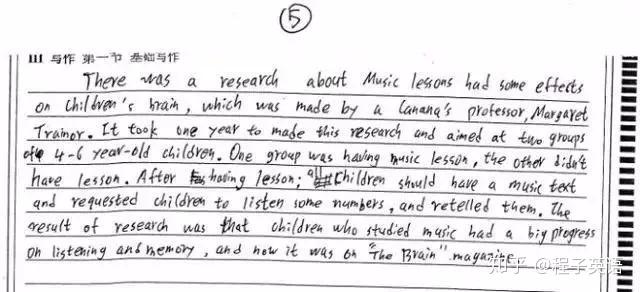 ⑤
III 写作 第一节 基础写作
There was a research about Music lessons had some effects
on children's brain, which was made by a Canana's professor, Margaret
Trainor. It took one year to made this research and aimed at two groups
of 4-6 year-old children. One group was having music lesson, the other didn't
have lesson. After having lesson, all children should have a music text
and requested children to listen some numbers, and retelled them. The
result of research was that children who studied music had a big progress
on listening and memory, and now it was on "The Brain" magazine.
知乎 @程子英语